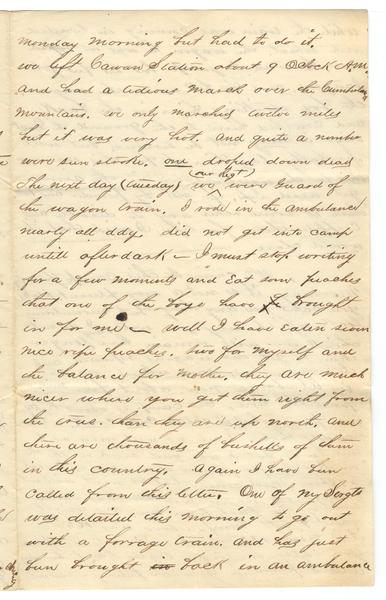 monday morning but had to do it.
we left Cowan Station about 9 Oclock A.M.
and had a tidious march over the Cumberland
mountains. we only marched twelve miles
but it was very hot. and quite a number
were sun stroke. one droped down dead
The next day (tuesday) we (our Regt) were Guard of
the wagon train. I rode in the ambulance
nearly all ddy did not get into camp
untill after dark — I must stop writing
for a few moments and Eat some peaches
that one of the boys have brought
in for me — well I have Eaten seven
nice ripe peaches. two for myself and
the balance for mother. they are much
nicer where you get them right from
the trees. than they are up north. and
there are thousands of bushells of them
in this country. Again I have been
called from this letter. One of my Sergts
was detailed this morning to go out
with a forrage train. and has just
been brought in back in an ambulance